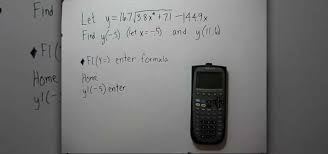 Find
Let y=167√(3.8x⁴+71) -1449x
Find y(-.5) (let x=-.5) and y(11.6)
♦F1(
♦F1(Y=) enter formula
Home
Home
y1(-
y1(-5) enter